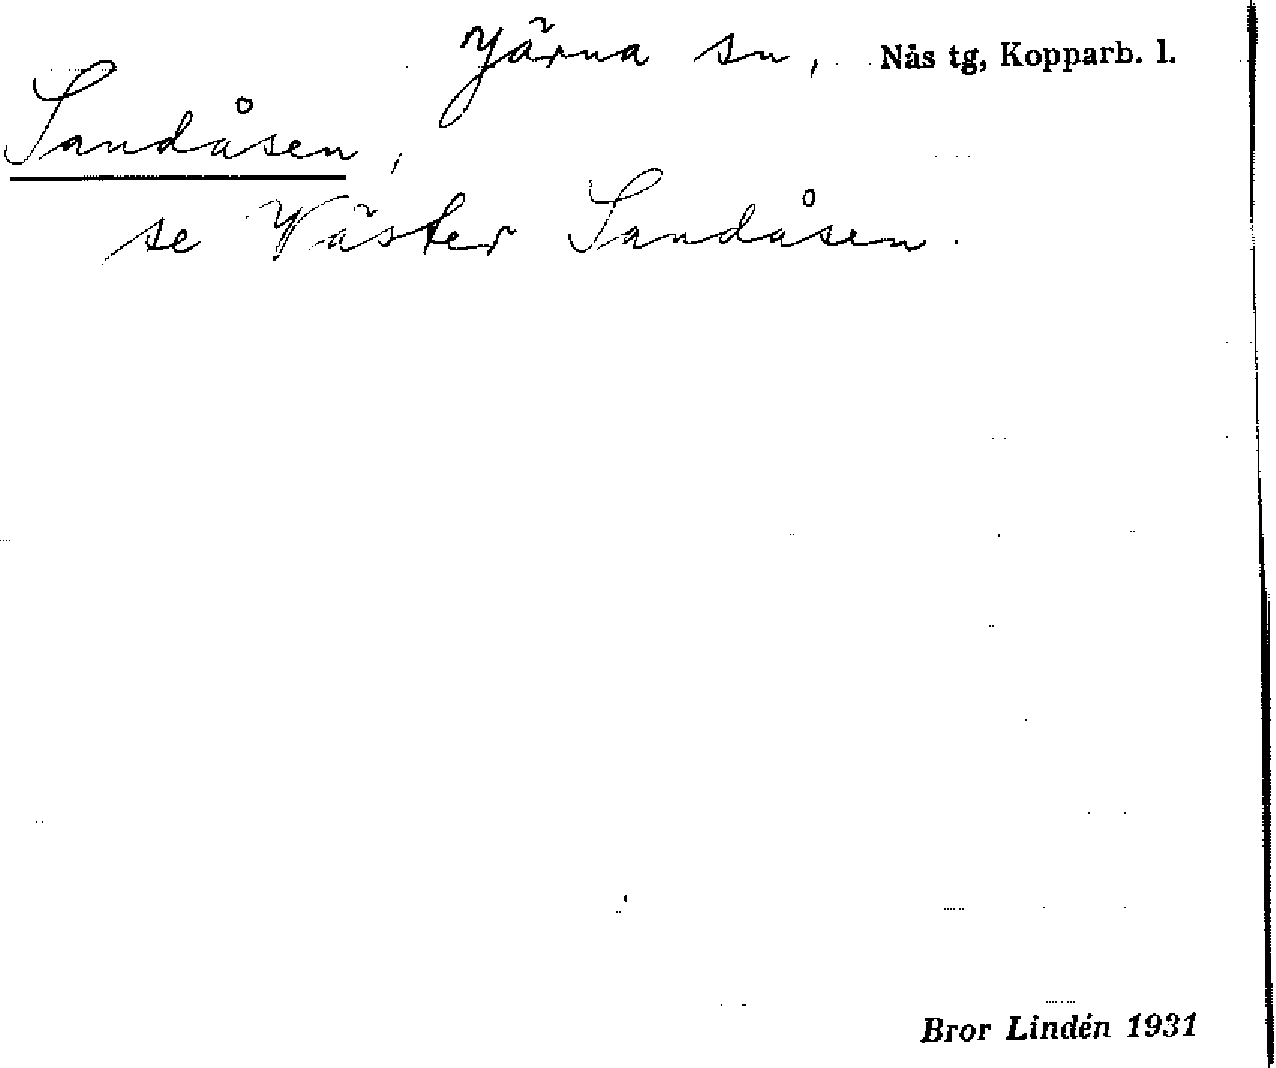 Järna sn, Nås tg, Kopparb. l.
Sandåsen,
se Väster Sandåsen.
Bror Lindén 1931